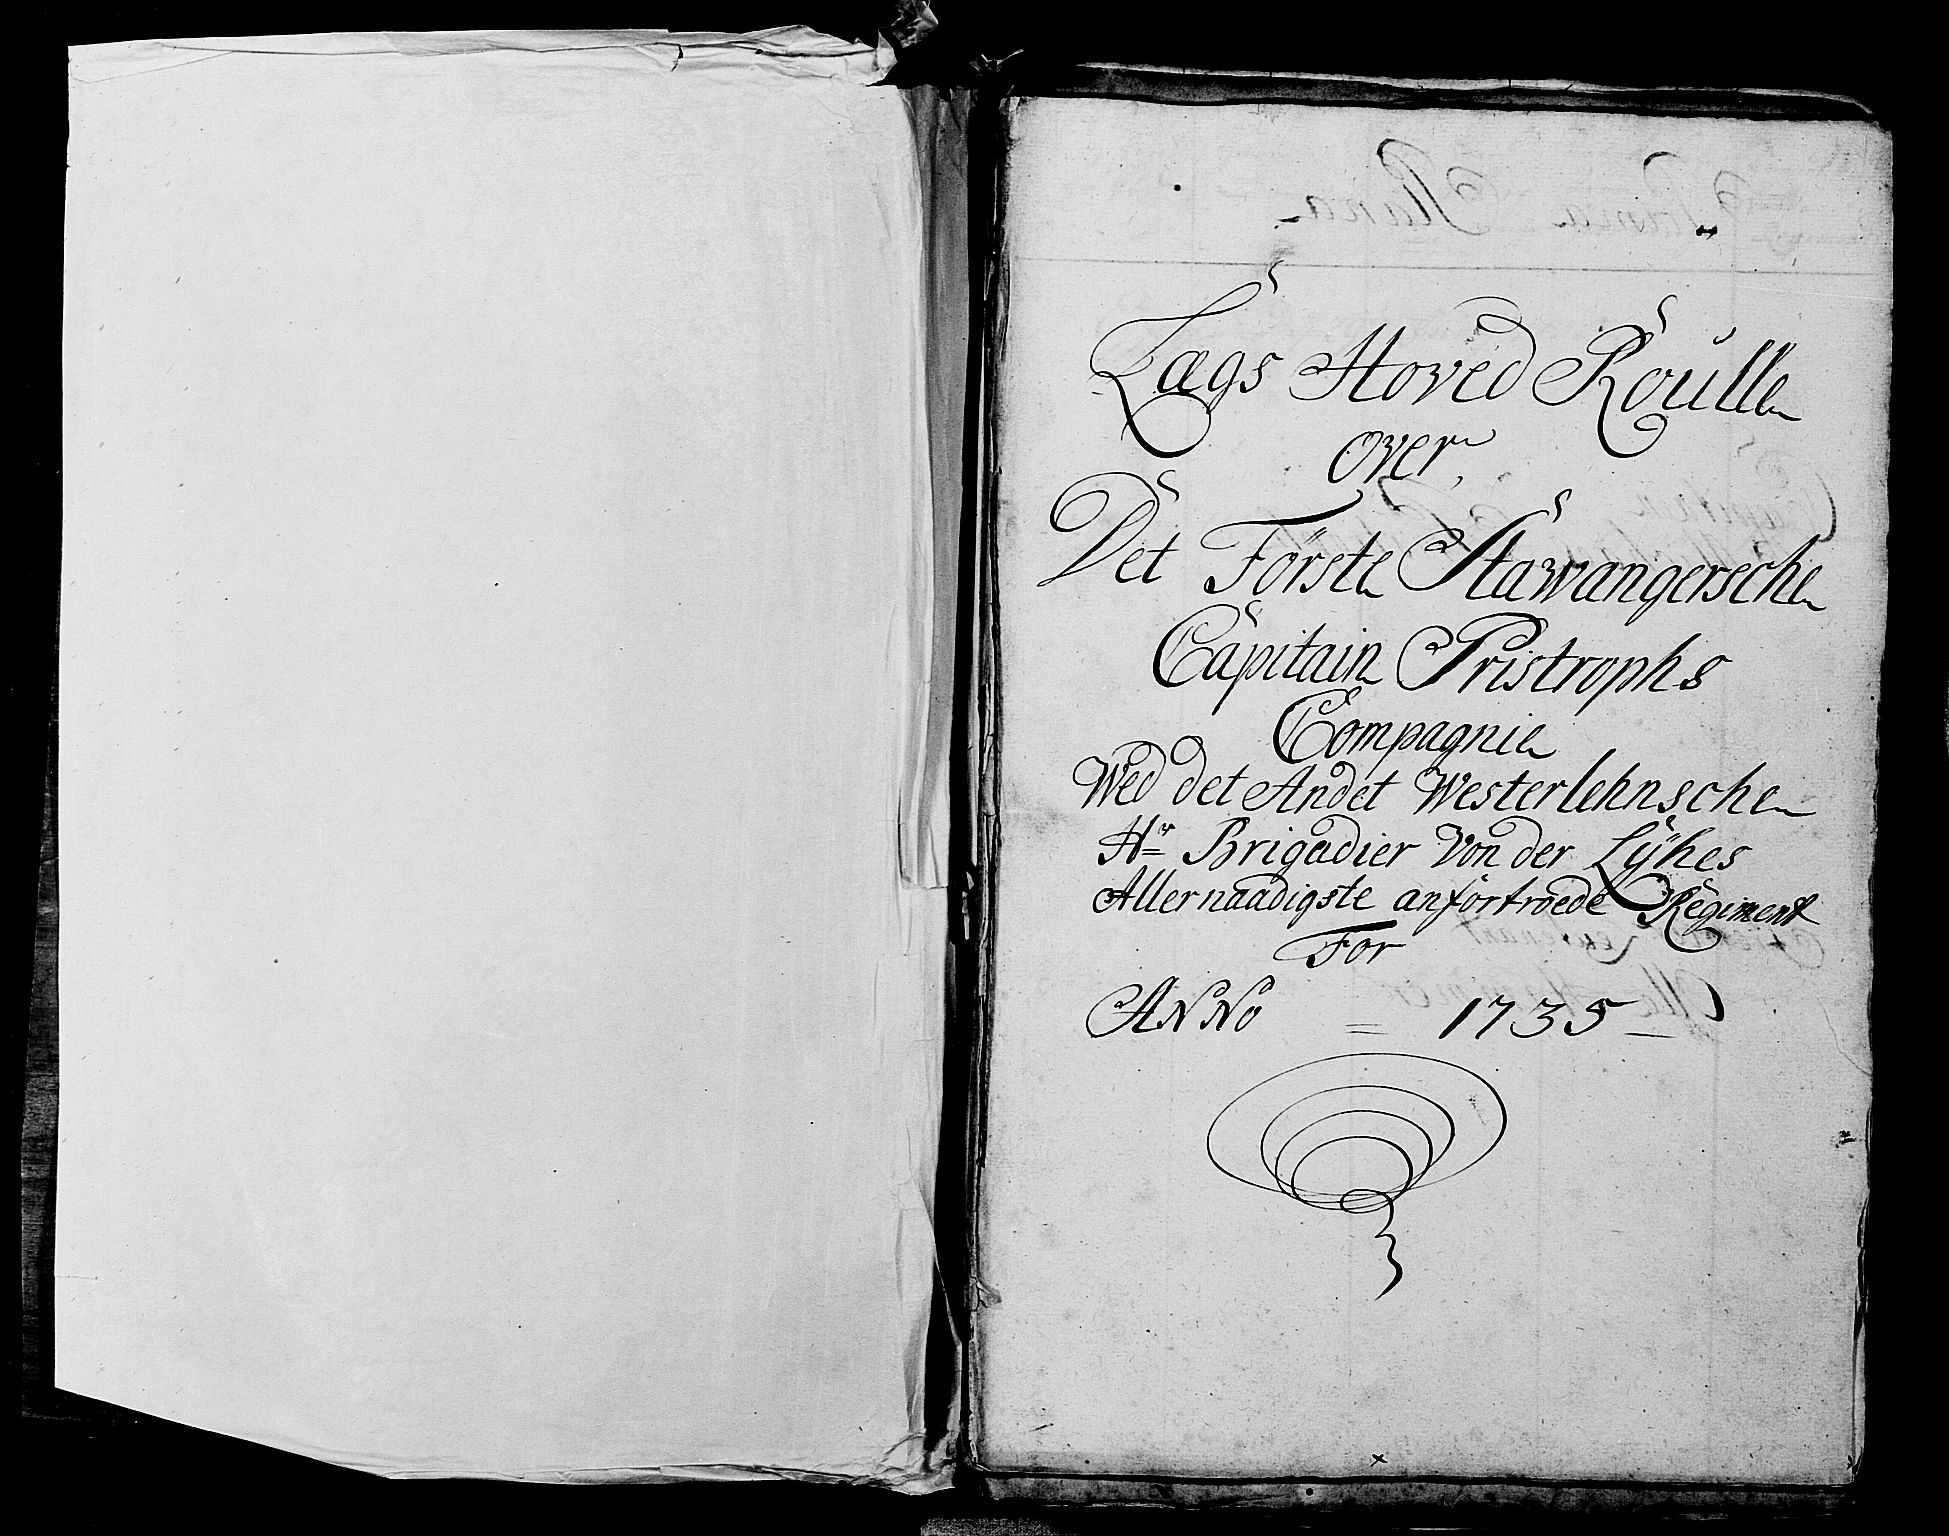 Lægs Hoved Roulle
over
Det Förste Stawangersche
Capitain Pristrophs
Compagnie
Wed det Andet Westerlehnsche
Hr Brigadier Von der Lÿhes
Allernaadigste anfortroede Regiment
For
ANNO = 1735